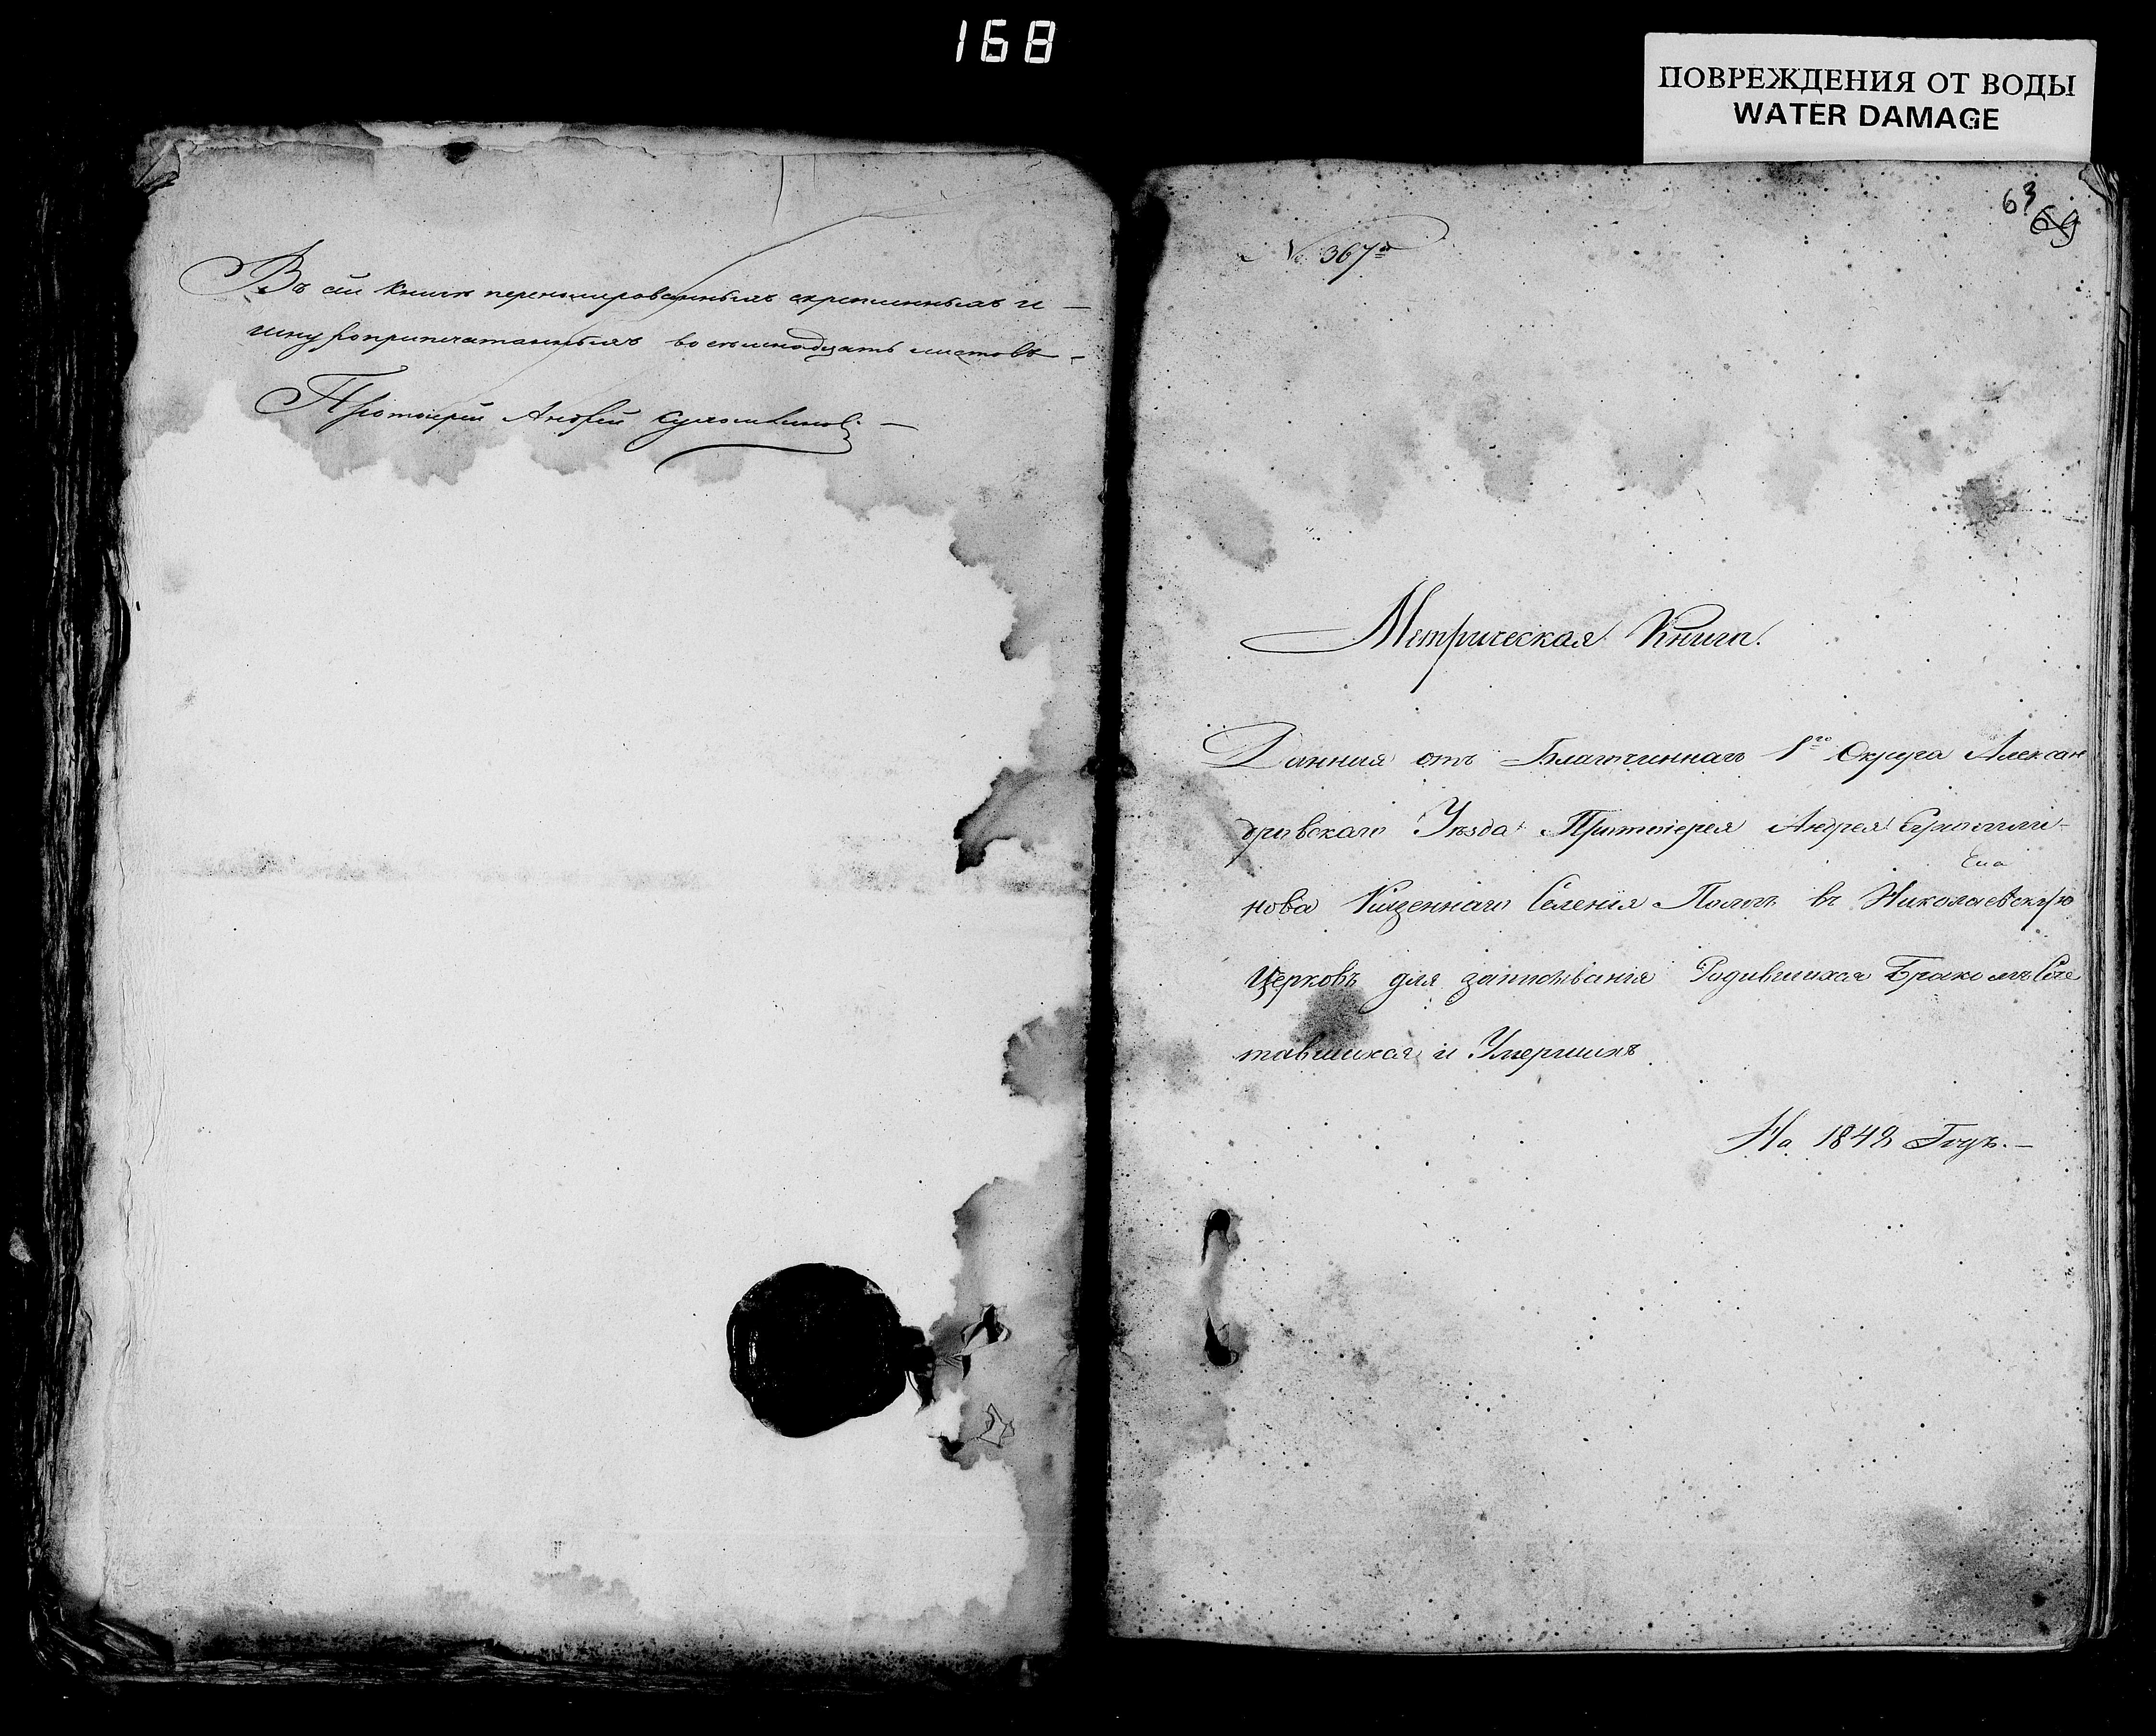 168
ПОВРЕЖДЕНИЯ ОТ ВОДЫ
WATER DAMAGE
Въ сей книгѣ перенумерованныхъ скрепленныхъ и
шнуроприпечатанныхъ восемнадцать листовъ
Протоіерей Андрей Сухомлиновъ
63 69
№ 367й
Метрическая Книга.
Данная отъ Благочиннаго 1го Округа Алексан
дровскаго Уѣзда Протоіерея Андрея Сухомли-
нова Казеннаго Селенія Пологъ въ Николаевскую
Церковь для записыванія Родившихся Бракомъ Соче
тавшихся и Умершихъ
На 1848 Годъ.